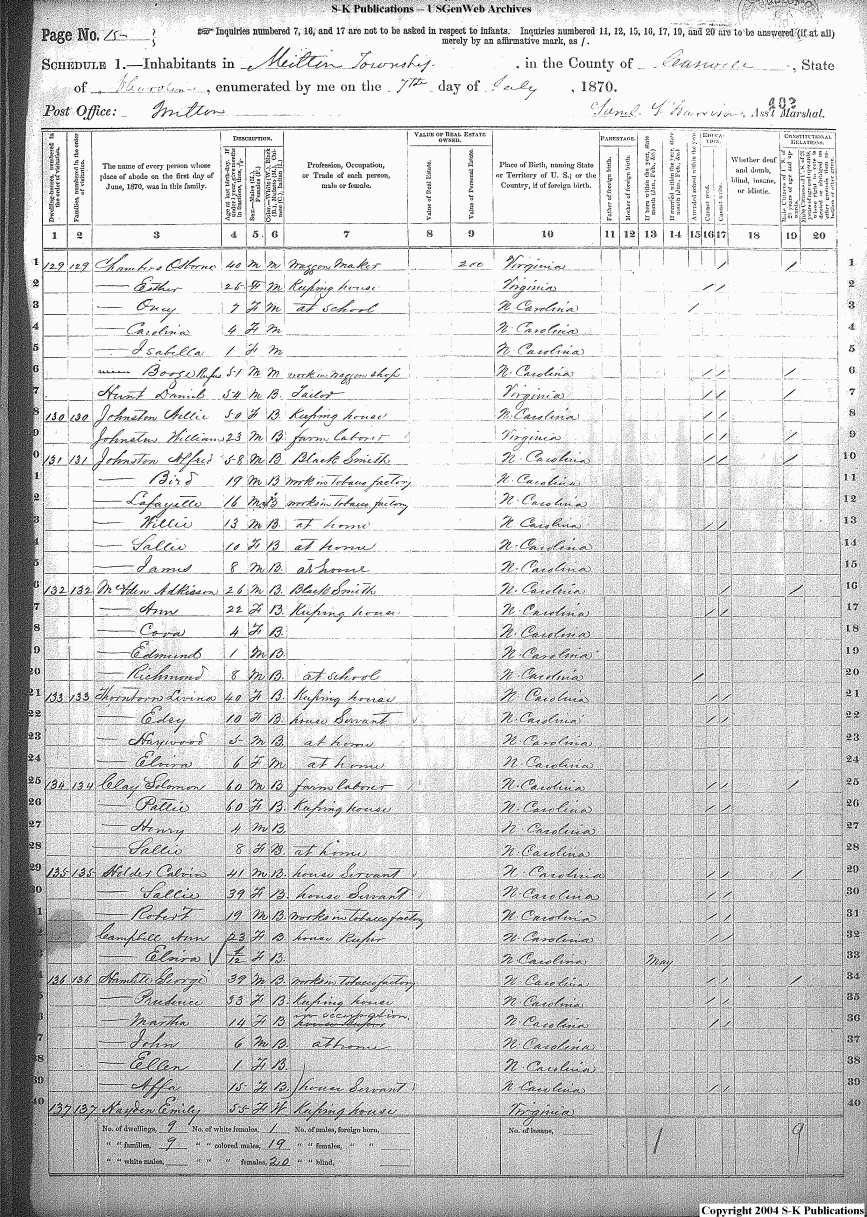 S-K Publications – USGenWeb Archives
Page No. 15
☞ Inquiries numbered 7, 16, and 17 are not to be asked in respect to infants. Inquiries numbered 11, 12, 15, 16, 17, 19, and 20 are to be answered (if at all) merely by an affirmative mark, as /.
SCHEDULE 1.—Inhabitants in Milton Township, in the County of Caswell, State
of N. Carolina, enumerated by me on the 7th day of July, 1870.
403
Post Office: Milton Ass't Marshal.
DESCRIPTION. VALUE OF REAL ESTATE OWNED. PARENTAGE. EDUCATION. CONSTITUTIONAL RELATIONS.
Dwelling-houses, numbered in the order of visitation.
Families, numbered in the order of visitation.
The name of every person whose place of abode on the first day of June, 1870, was in this family.
Profession, Occupation, or Trade of each person, male or female.
Value of Real Estate.
Value of Personal Estate.
Place of Birth, naming State or Territory of U. S.; or the Country, if of foreign birth.
Father of foreign birth.
Mother of foreign birth.
Attended school within the year.
Cannot read.
Cannot write.
Whether deaf and dumb, blind, insane, or idiotic.
1 2 3 4 5 6 7 8 9 10 11 12 13 14 15 16 17 18 19 20
1 129 129 Chambers Osborne 40 M M Waggon Maker 200 Virginia / / 1
2 — Esther 26 F M Keeping house Virginia / / 2
3 — Oney 7 F M at school N. Carolina / 3
4 — Carolina 4 F M N. Carolina 4
5 — Isabella 1 F M N. Carolina 5
6 — Booze Rufus 51 M M work in waggon shop N. Carolina / / / 6
7 Hunt Daniel 54 M B. Tailor Virginia / / / 7
8 130 130 Johnston Millie 50 F B Keeping house N. Carolina / / 8
9 Johnston William 23 M B farm laborer Virginia / / / 9
0 131 131 Johnston Alfred 58 M B. Black Smith N. Carolina / / / 10
1 — Bird 19 M B works in Tobacco factory N. Carolina 11
2 Lafayette 16 M B works in Tobacco factory N. Carolina 12
3 — Willie 13 M B at home N. Carolina / / 13
4 — Sallie 10 F B at home N. Carolina 14
5 — James 8 M B. at home N. Carolina 15
6 132 132 Adkisson 26 M B. Black Smith N. Carolina / / 16
7 — Ann 22 F B. Keeping house N. Carolina / / 17
8 — Cora 4 F B. N. Carolina 18
9 — Edmund 1 M B. N. Carolina 19
20 — Richmond 8 M B. at school N. Carolina / 20
21 133 133 Thorntorn Livina 40 F B. Keeping house N. Carolina / / 21
22 — Edey 10 F B. house Servant N. Carolina / / 22
23 — Haywood 5 M B. at home N. Carolina 23
24 — Elvira 6 F M at home N. Carolina 24
25 134 134 Clay Solomon 60 M B. farm laborer N. Carolina / / 25
26 — Pattie 60 F B. Keeping house N. Carolina / / 26
27 — Henry 4 M B. N. Carolina 27
28 — Sallie 8 F B at home N. Carolina 28
29 135 135 Holder Calvin 41 M B. house Servant N. Carolina / / / 29
30 — Sallie 39 F B. house Servant N. Carolina / / 30
1 — Robert 19 M B. works in tobacco factory N. Carolina / / 31
Campbell Ann 23 F B. house Keeper N. Carolina / / 32
— Elvira 1/12 F B. N. Carolina May 33
136 136 Hamlett George 39 M B. works in tobacco factory N. Carolina / / / 34
— Prudence 33 F B. Keeping house N. Carolina / / 35
— Martha 14 F B no occupation N. Carolina / / 36
7 — John 6 M B. at home N. Carolina 37
38 — Ellen 1 F B. N. Carolina 38
39 — Affa 15 F B. house Servant N. Carolina / / 39
40 137 137 Hayden Emily 55 F W Keeping house Virginia 40
No. of dwellings, 9 No. of white females, 1 No. of males, foreign born, No. of insane, 1 9
" " families, 9 " " colored males, 19 " " females, " "
" " white males, " " " females, 20 " " blind,
Copyright 2004 S-K Publications